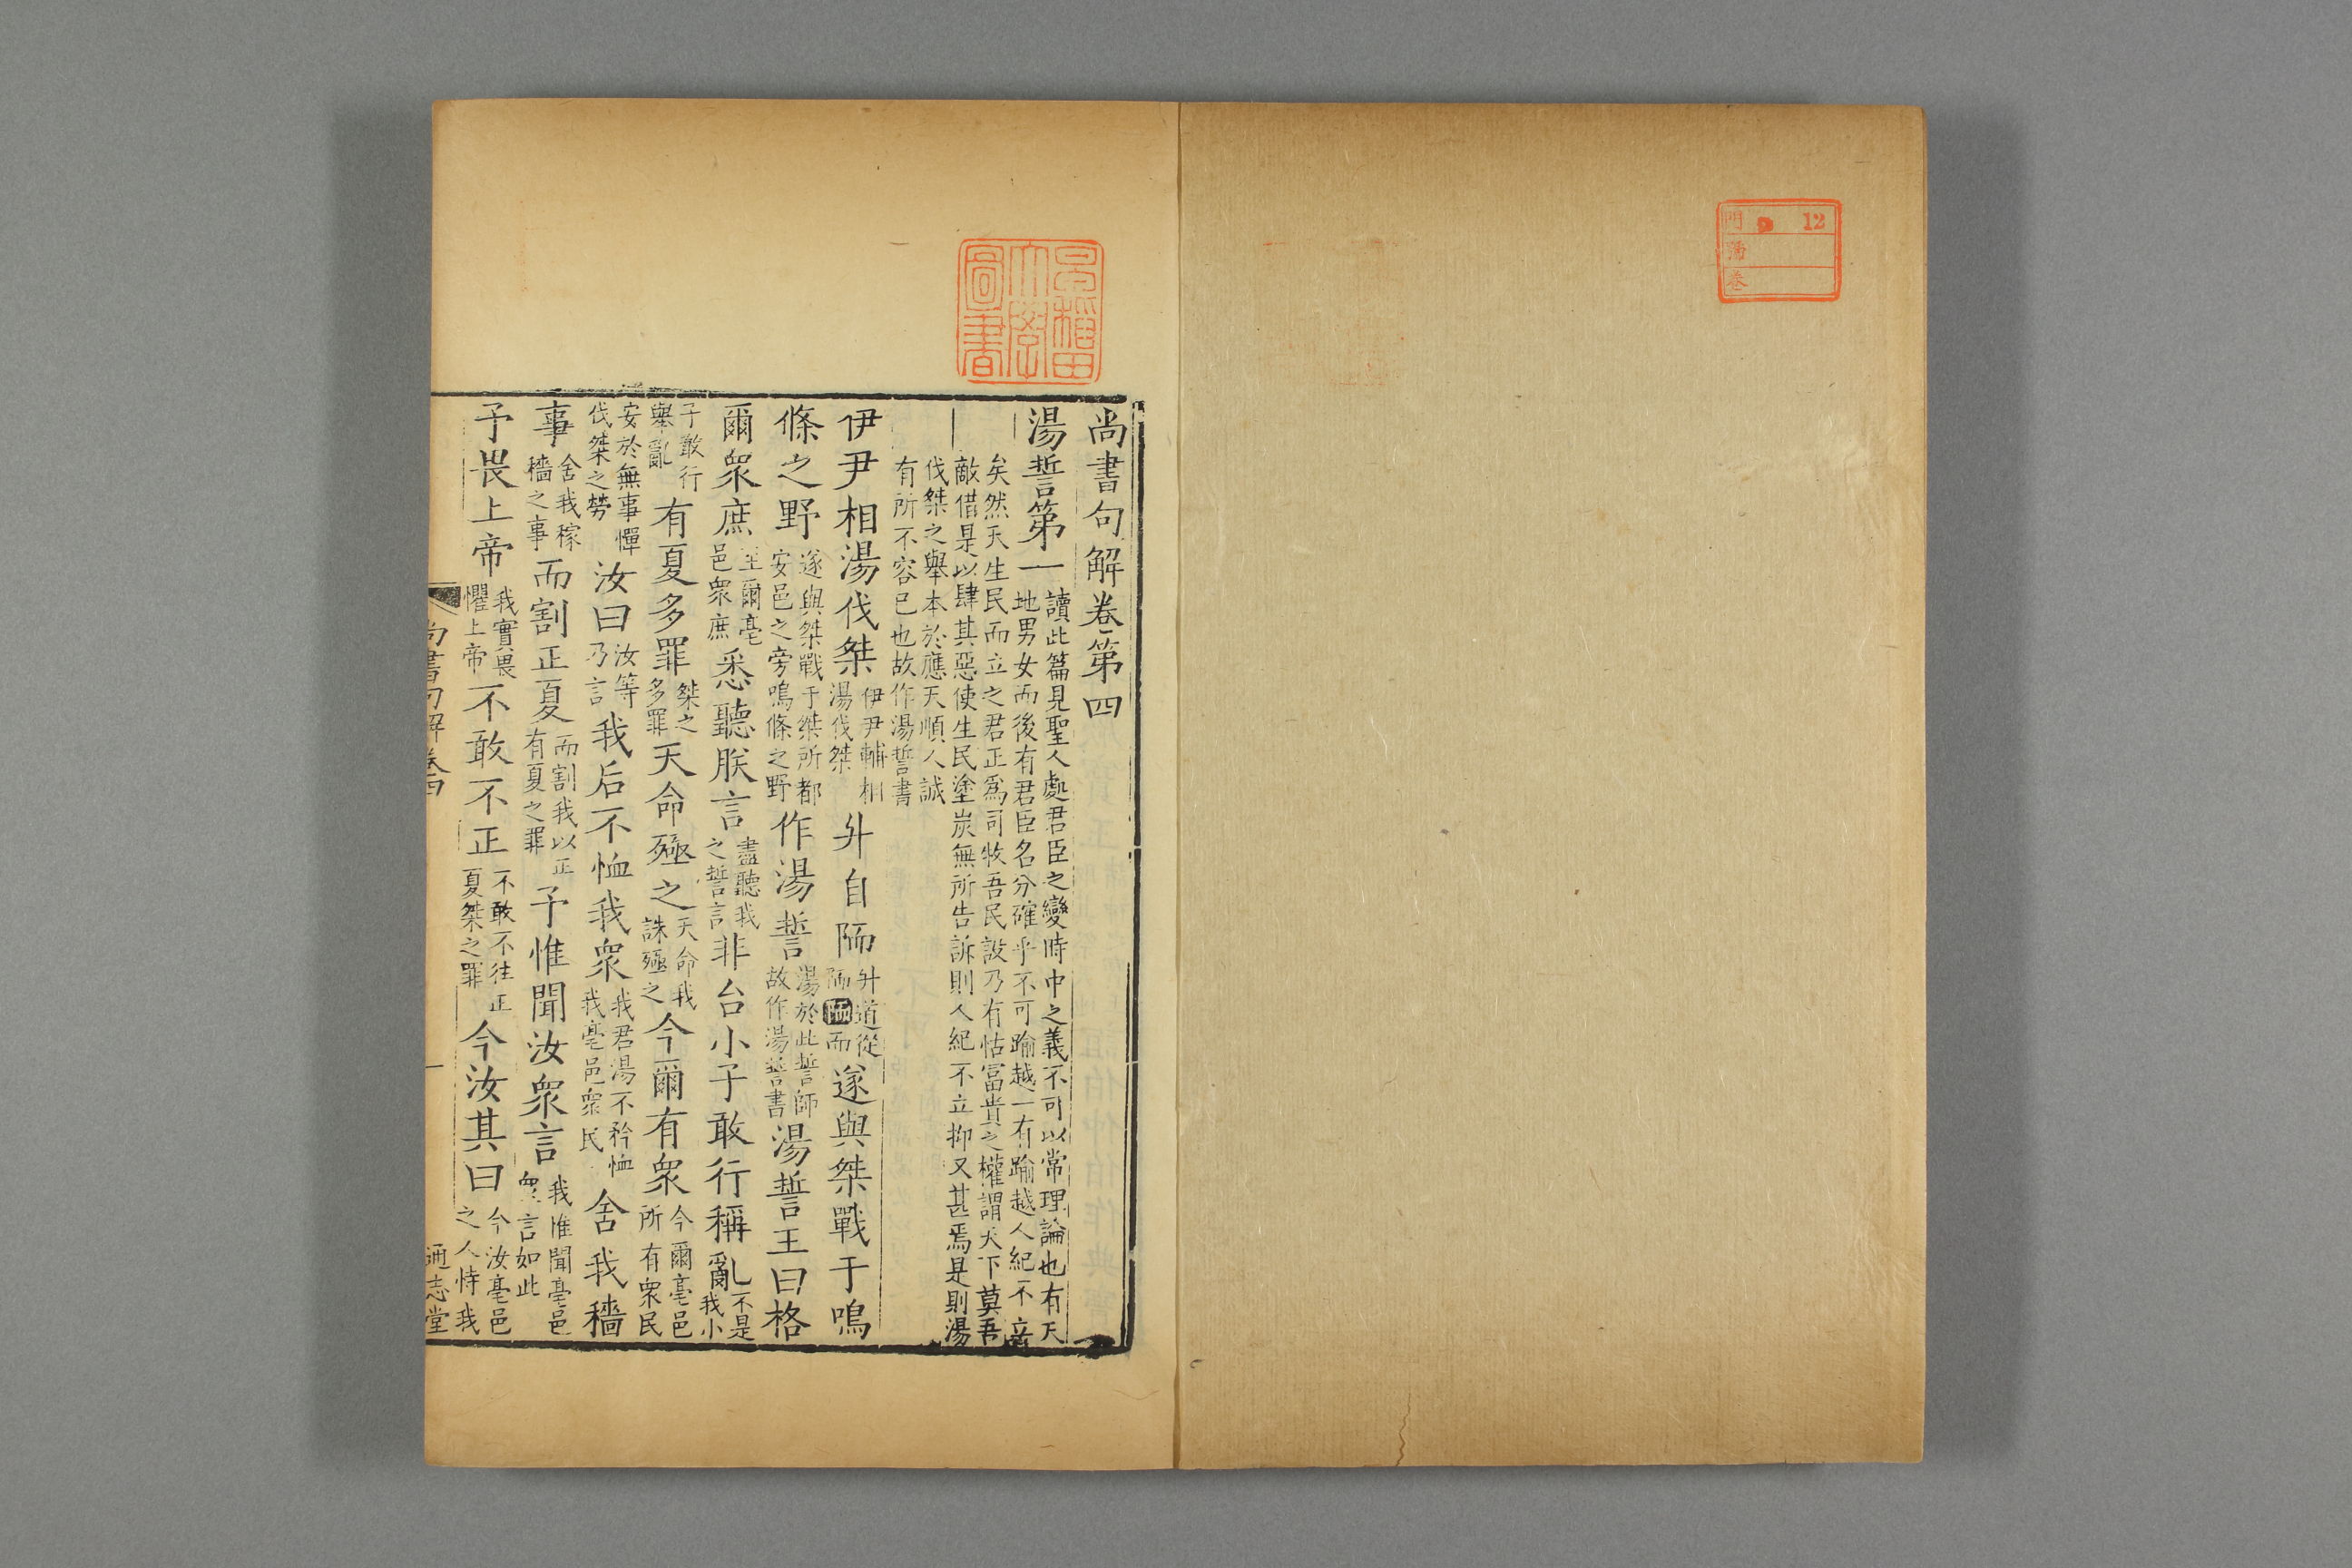 門 12
號
卷
早稻田
大學
圖書
尚書句解卷第四
湯誓第一讀此篇見聖人處君臣之變時中之義不可以常理論也有天地男女而後有君臣名分確乎不可踰越一有踰越人紀不立
矣然天生民而立之君正爲司牧吾民設乃有怙富貴之權謂天下莫吾敵借是以肆其惡使生民塗炭無所告訴則人紀不立抑又甚焉是則湯
伐桀之舉本於應天順人誠有所不容已也故作湯誓書
伊尹相湯伐桀伊尹輔相湯伐桀升自陑升道從陑陑而遂與桀戰于鳴
條之野遂與桀戰于桀所都安邑之旁鳴條之野作湯誓湯於此誓師故作湯誓書湯誓王曰格
爾衆庶至爾亳邑衆庶悉聽朕言盡聽我之誓言非台小子敢行稱亂不是我小
子敢行舉亂有夏多罪桀之多罪天命殛之天命我誅殛之今爾有衆今爾亳邑所有衆民
安於無事憚伐桀之勞汝曰汝等乃言我后不恤我衆我君湯不矜恤我亳邑衆民舍我穡
事舍我稼穡之事而割正夏而割我以正有夏之罪予惟聞汝衆言我惟聞亳邑衆言如此
予畏上帝我實畏懼上帝不敢不正不敢不往正夏桀之罪今汝其曰今汝亳邑之人恃我
尚書句解卷四 一 通志堂